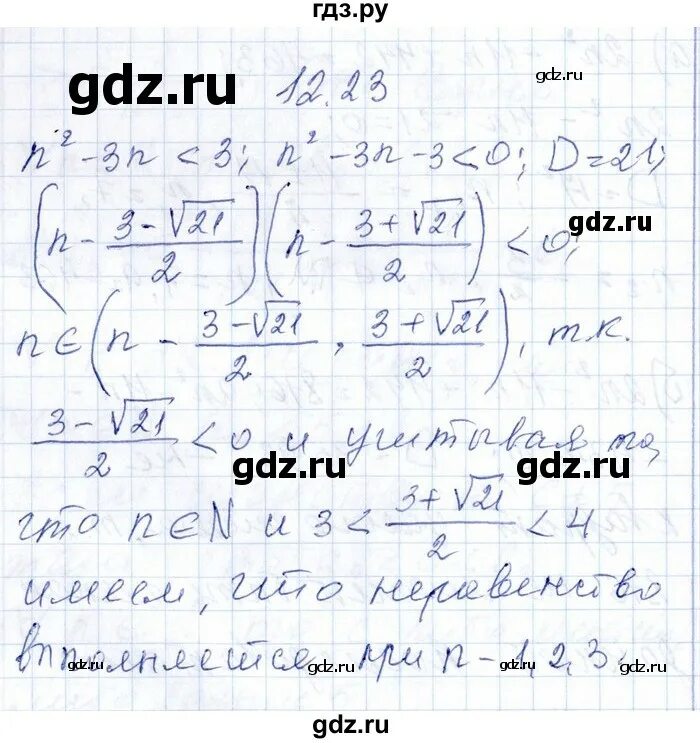 гдз.ру
gdz.ru 12.23 gdz.ru
n² - 3n < 3; n² - 3n - 3 < 0; D = 21;
(n - (3 - √21)/2)(n - (3 + √21)/2) < 0; gdz.ru
n ∈ (n - (3 - √21)/2, (3 + √21)/2), т.к.
(3 - √21)/2 < 0 и учитывая то,
gdz.ru gdz.ru
что n ∈ N и 3 < (3 + √21)/2 < 4
имеем, что неравенство
выполняется при n - 1, 2, 3.
gdz.ru gdz.ru gdz.ru
gdz.ru